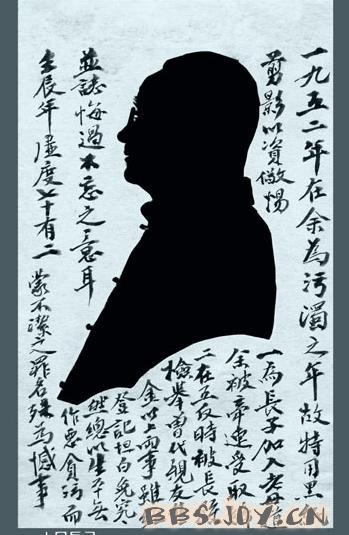 一九五二年在余為污濁之年故特用黑
剪影以資儆惕
一為長子加入
余被帝連受取
二在五反時被長
檢舉曾代親友
金以上兩事雖
登記坦白免究
然總以生平無
作惡貪污而
蒙不潔之罪名殊為憾事
並誌悔過不忘之意耳
壬辰年虛度七十有二
BBS.JOY.CN